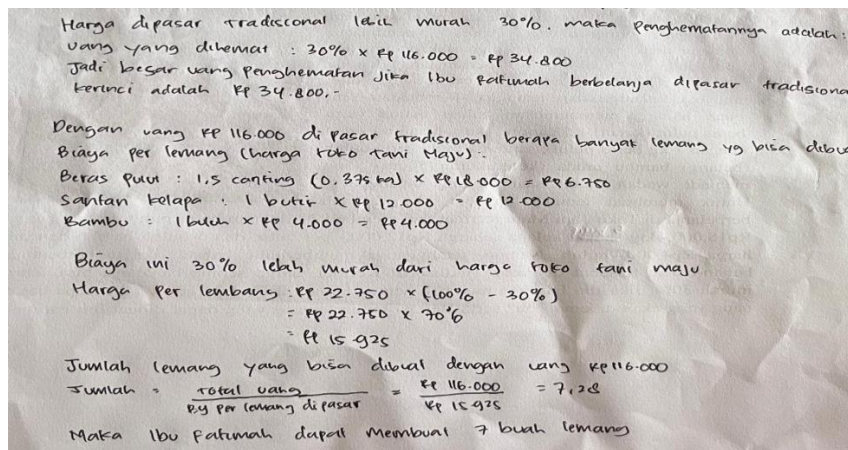 Harga dipasar tradisional lebih murah 30%. maka Penghematannya adalah:
Uang yang dihemat : 30% x Rp 116.000 = Rp 34.800
Jadi besar uang Penghematan Jika Ibu Fatimah berbelanja dipasar tradisiona
Kerinci adalah Rp 34.800,-
Dengan uang Rp 116.000 di Pasar tradisional berapa banyak lemang yg bisa dibu
Biaya Per lemang (harga toko Tani Maju) :
Beras Pulut : 1,5 canting (0.375 kg) x Rp 18.000 = Rp 6.750
Santan Kelapa : 1 butir x Rp 12.000 = Rp 12.000
Bambu : 1 buluh x Rp 4.000 = Rp 4.000
Biaya ini 30% lebih murah dari harga toko tani maju
Harga Per lembang : Rp 22.750 x (100% - 30%)
= Rp 22.750 x 70%
= Rp 15.925
Jumlah lemang yang bisa dibuat dengan uang Rp 116.000
Jumlah = Total uang / By Per lemang dipasar = Rp 116.000 / Rp 15.925 = 7,28
Maka Ibu Fatimah dapat Membuat 7 buah lemang